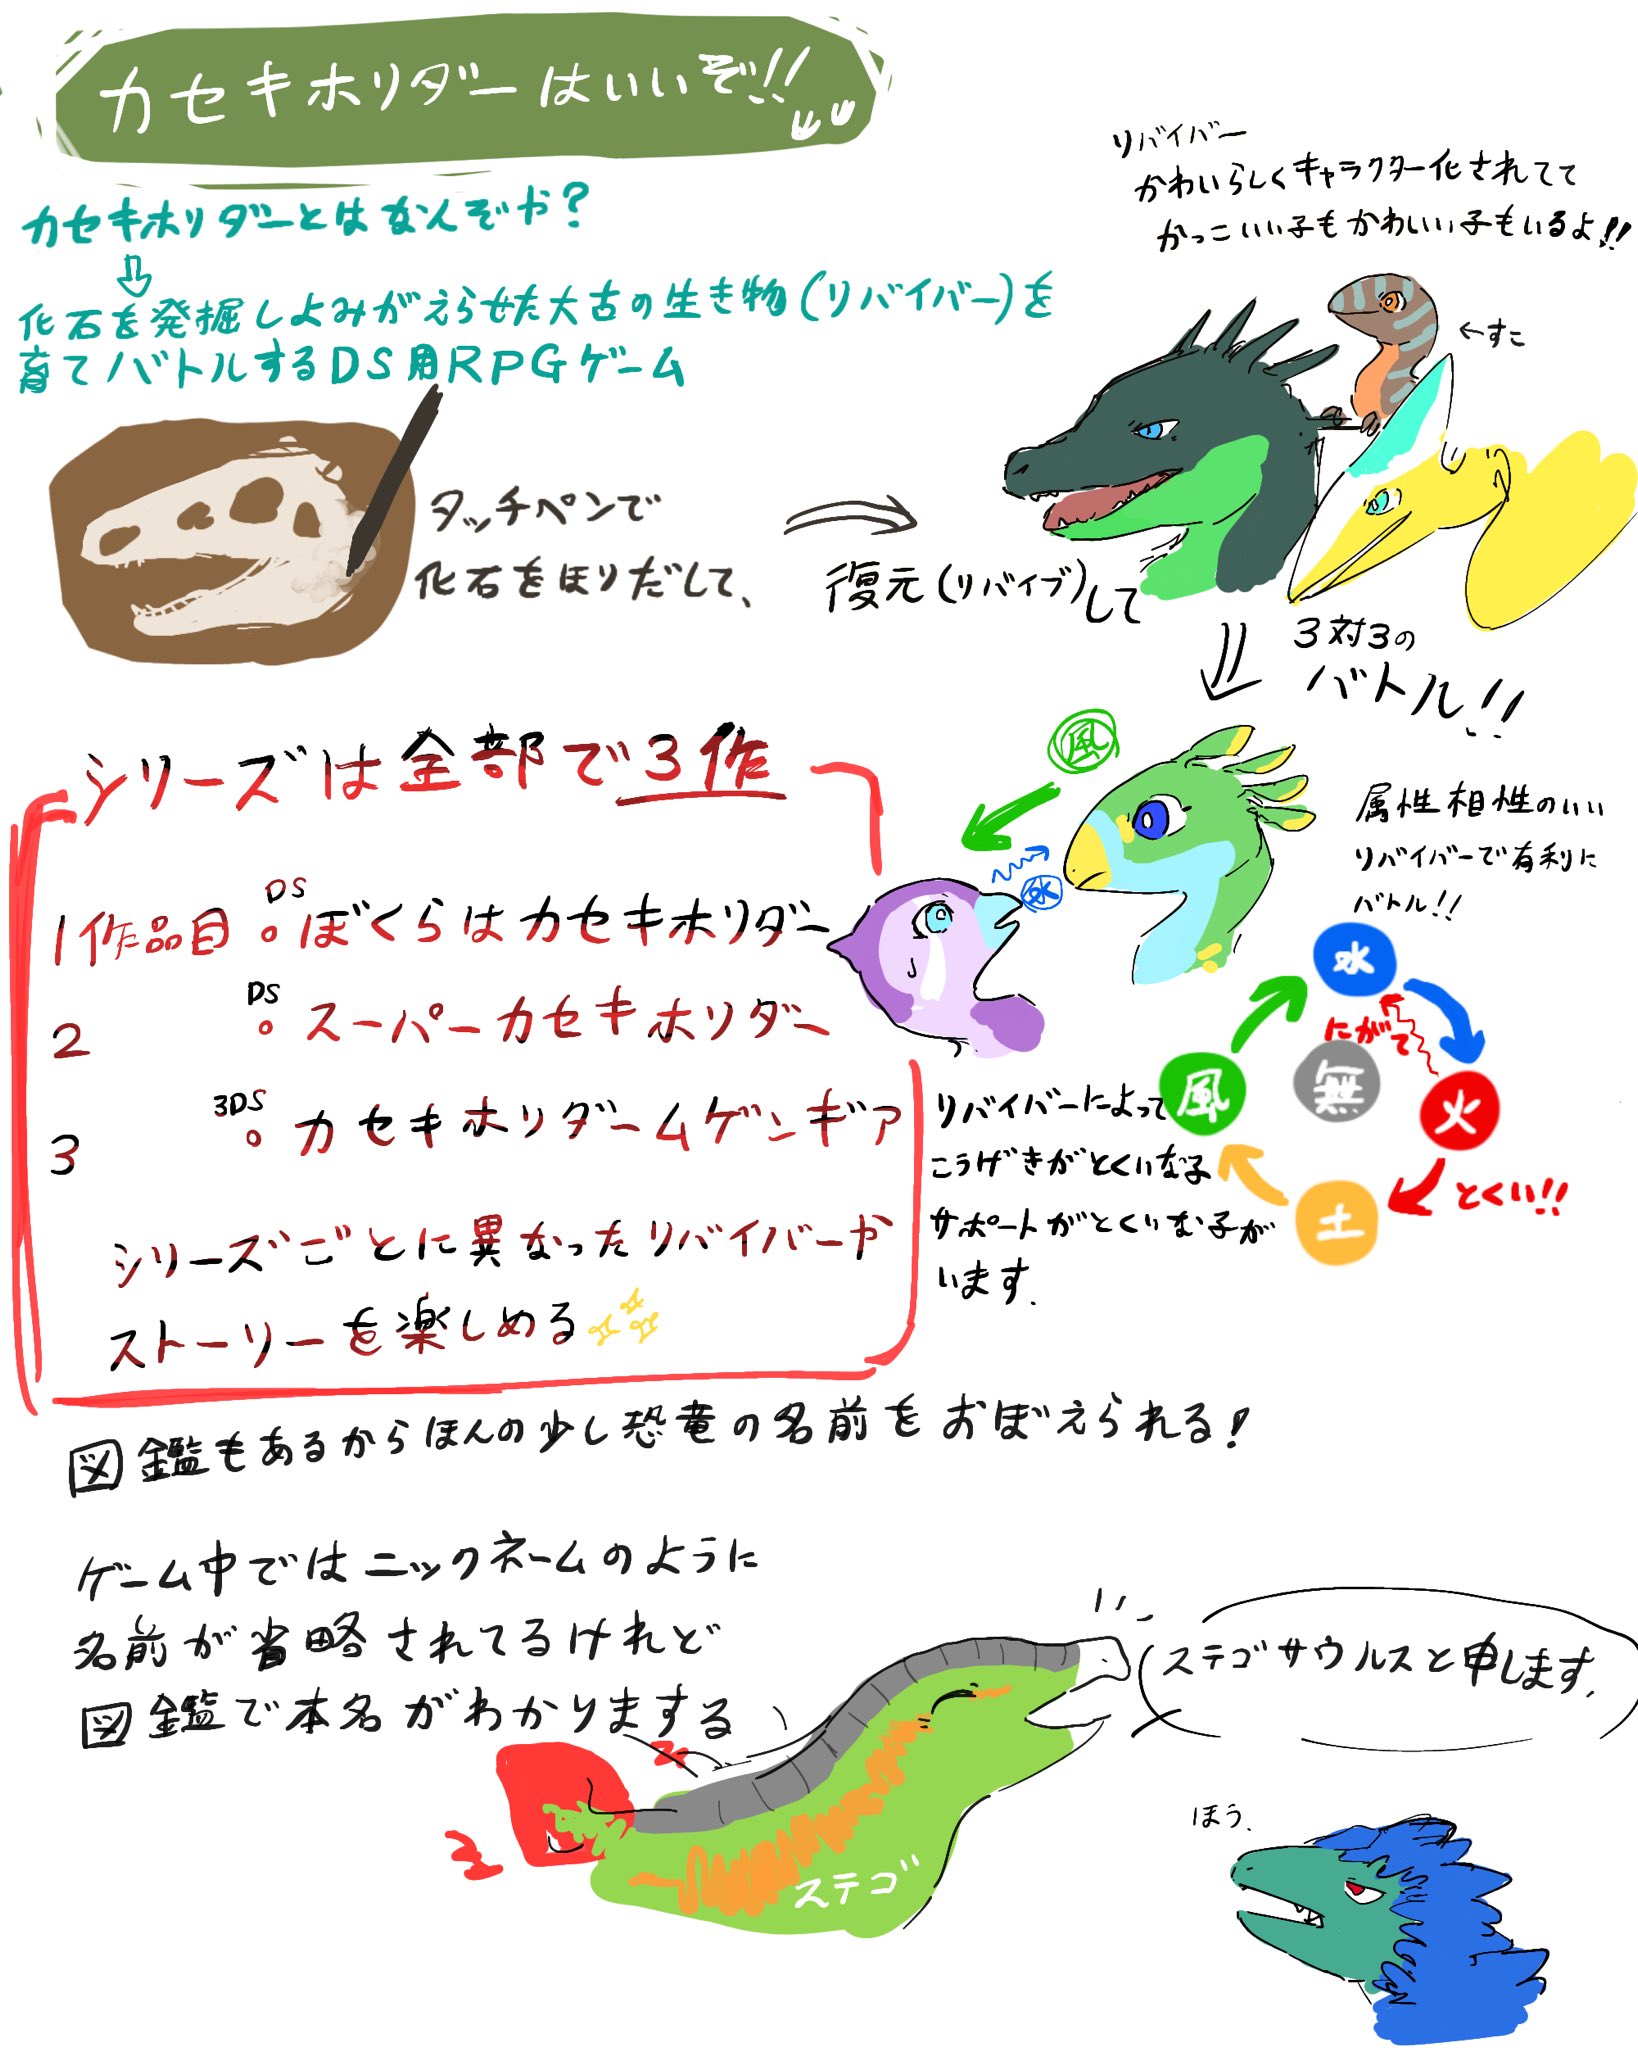 カセキホリダーはいいぞ!!
カセキホリダーとはなんぞや?
化石を発掘しよみがえらせた太古の生き物(リバイバー)を
育てバトルするDS用RPGゲーム
リバイバー
かわいらしくキャラクター化されてて
かっこいい子もかわいい子もいるよ!!
←すこ
タッチペンで
化石をほりだして、
復元(リバイブ)して
3対3の
バトル!!
シリーズは全部で3作
DS
1作品目:ぼくらはカセキホリダー
DS
2 : スーパーカセキホリダー
3DS
3 : カセキホリダームゲンギア
シリーズごとに異なったリバイバーや
ストーリーを楽しめる
風
水
属性相性のいい
リバイバーで有利に
バトル!!
水
にがて
風
無
火
土
とくい!!
リバイバーによって
こうげきがとくいな子
サポートがとくいな子が
います.
図鑑もあるからほんの少し恐竜の名前をおぼえられる!
ゲーム中ではニックネームのように
名前が省略されてるけれど
図鑑で本名がわかりまする
ステゴサウルスと申します.
ステゴ
ほう.